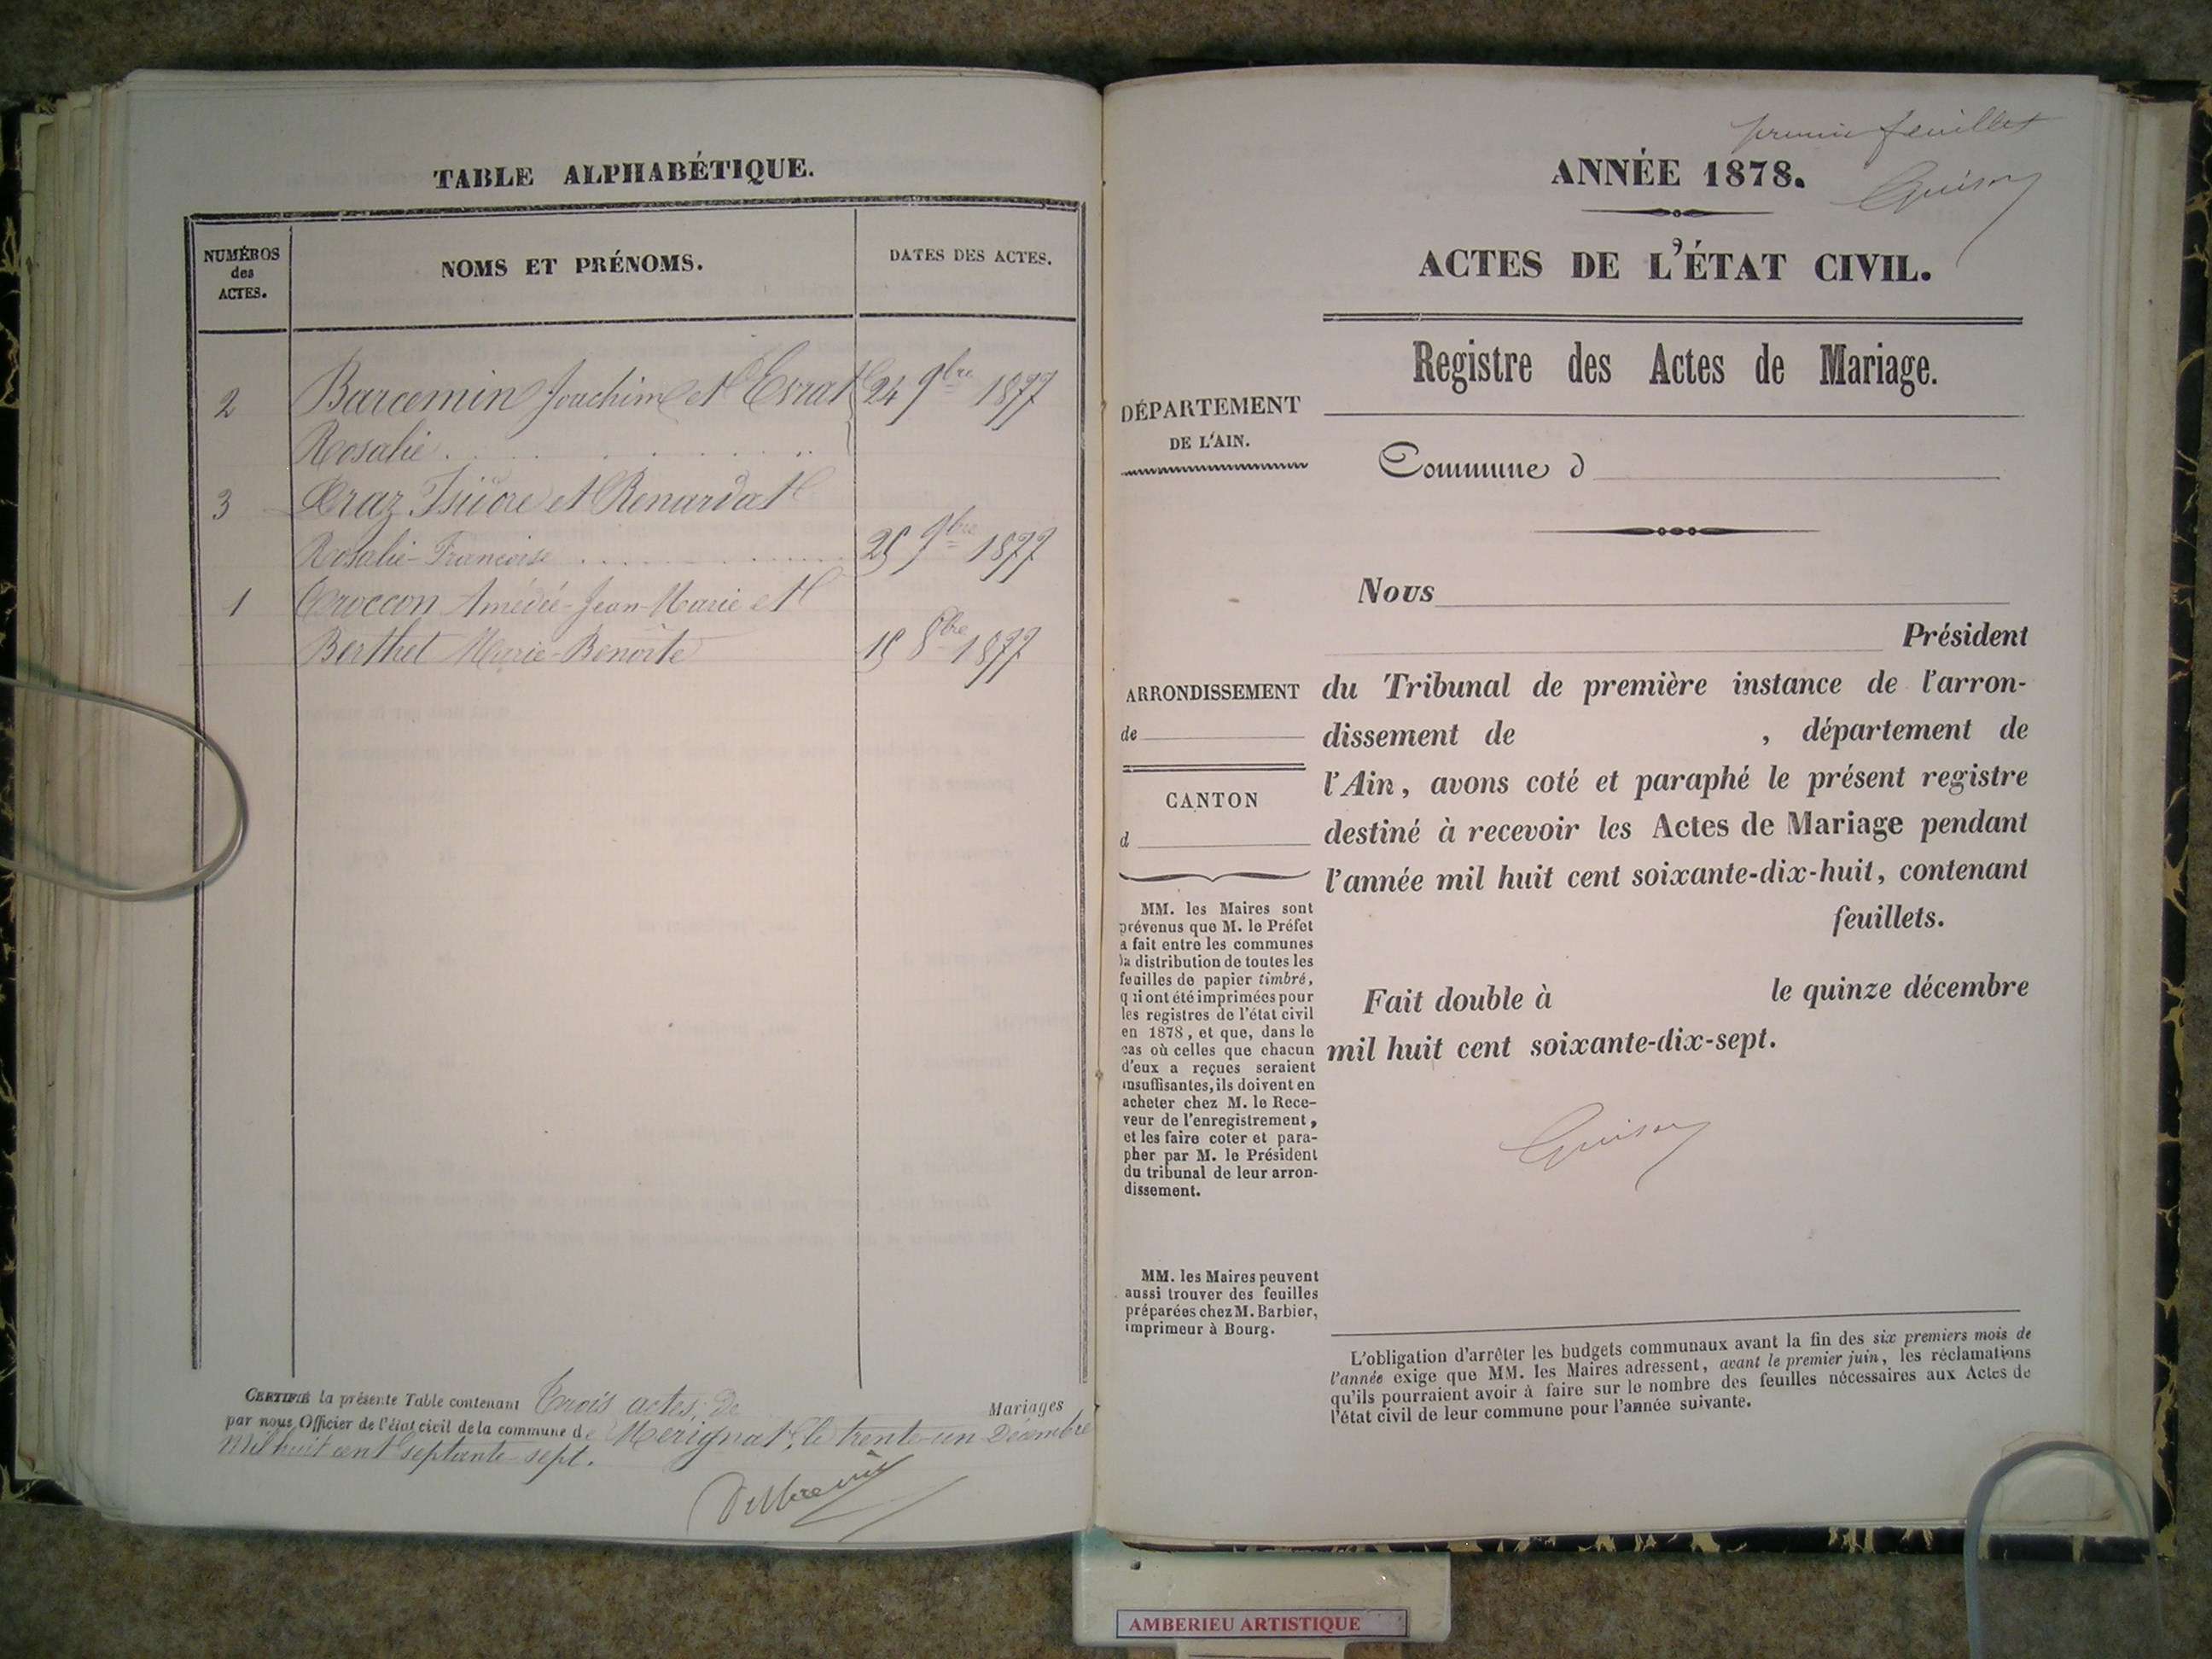 TABLE ALPHABÉTIQUE.
NUMÉROS
des
ACTES.
NOMS ET PRÉNOMS.
DATES DES ACTES.
2 Barcemin Joachim et Evrat 24 9bre 1877
Rosalie
3 Draz Isidore et Renardat
Rosalie-Françoise 25 9bre 1877
1 Croccon Amédée-Jean-Marie et
Berthet Marie-Benoite 15 8bre 1877
CERTIFIÉ la présente Table contenant Trois actes, de Mariages
par nous Officier de l'état civil de la commune de Mérignat, le trente-un Décembre
Mil huit cent septante-sept.
premier feuillet
ANNÉE 1878.
ACTES DE L'ÉTAT CIVIL.
Registre des Actes de Mariage.
DÉPARTEMENT
DE L'AIN.
Commune d
Nous
Président
ARRONDISSEMENT
de
CANTON
d
du Tribunal de première instance de l'arron-
dissement de , département de
l'Ain, avons coté et paraphé le présent registre
destiné à recevoir les Actes de Mariage pendant
l'année mil huit cent soixante-dix-huit, contenant
feuillets.
Fait double à le quinze décembre
mil huit cent soixante-dix-sept.
MM. les Maires sont
prévenus que M. le Préfet
a fait entre les communes
la distribution de toutes les
feuilles de papier timbré,
qui ont été imprimées pour
les registres de l'état civil
en 1878, et que, dans le
cas où celles que chacun
d'eux a reçues seraient
insuffisantes, ils doivent en
acheter chez M. le Rece-
veur de l'enregistrement,
et les faire coter et para-
pher par M. le Président
du tribunal de leur arron-
dissement.
MM. les Maires peuvent
aussi trouver des feuilles
préparées chez M. Barbier,
imprimeur à Bourg.
L'obligation d'arrêter les budgets communaux avant la fin des six premiers mois de
l'année exige que MM. les Maires adressent, avant le premier juin, les réclamations
qu'ils pourraient avoir à faire sur le nombre des feuilles nécessaires aux Actes de
l'état civil de leur commune pour l'année suivante.
AMBERIEU ARTISTIQUE